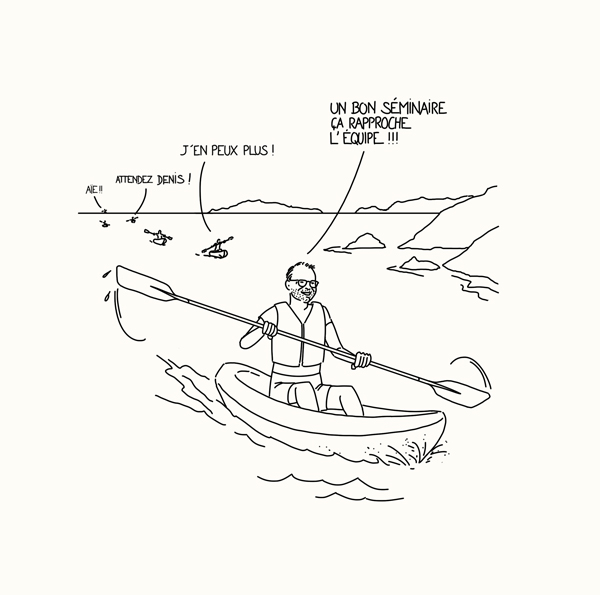 UN BON SÉMINAIRE
ÇA RAPPROCHE
L'ÉQUIPE !!!
J'EN PEUX PLUS !
ATTENDEZ DENIS !
AÏE !!